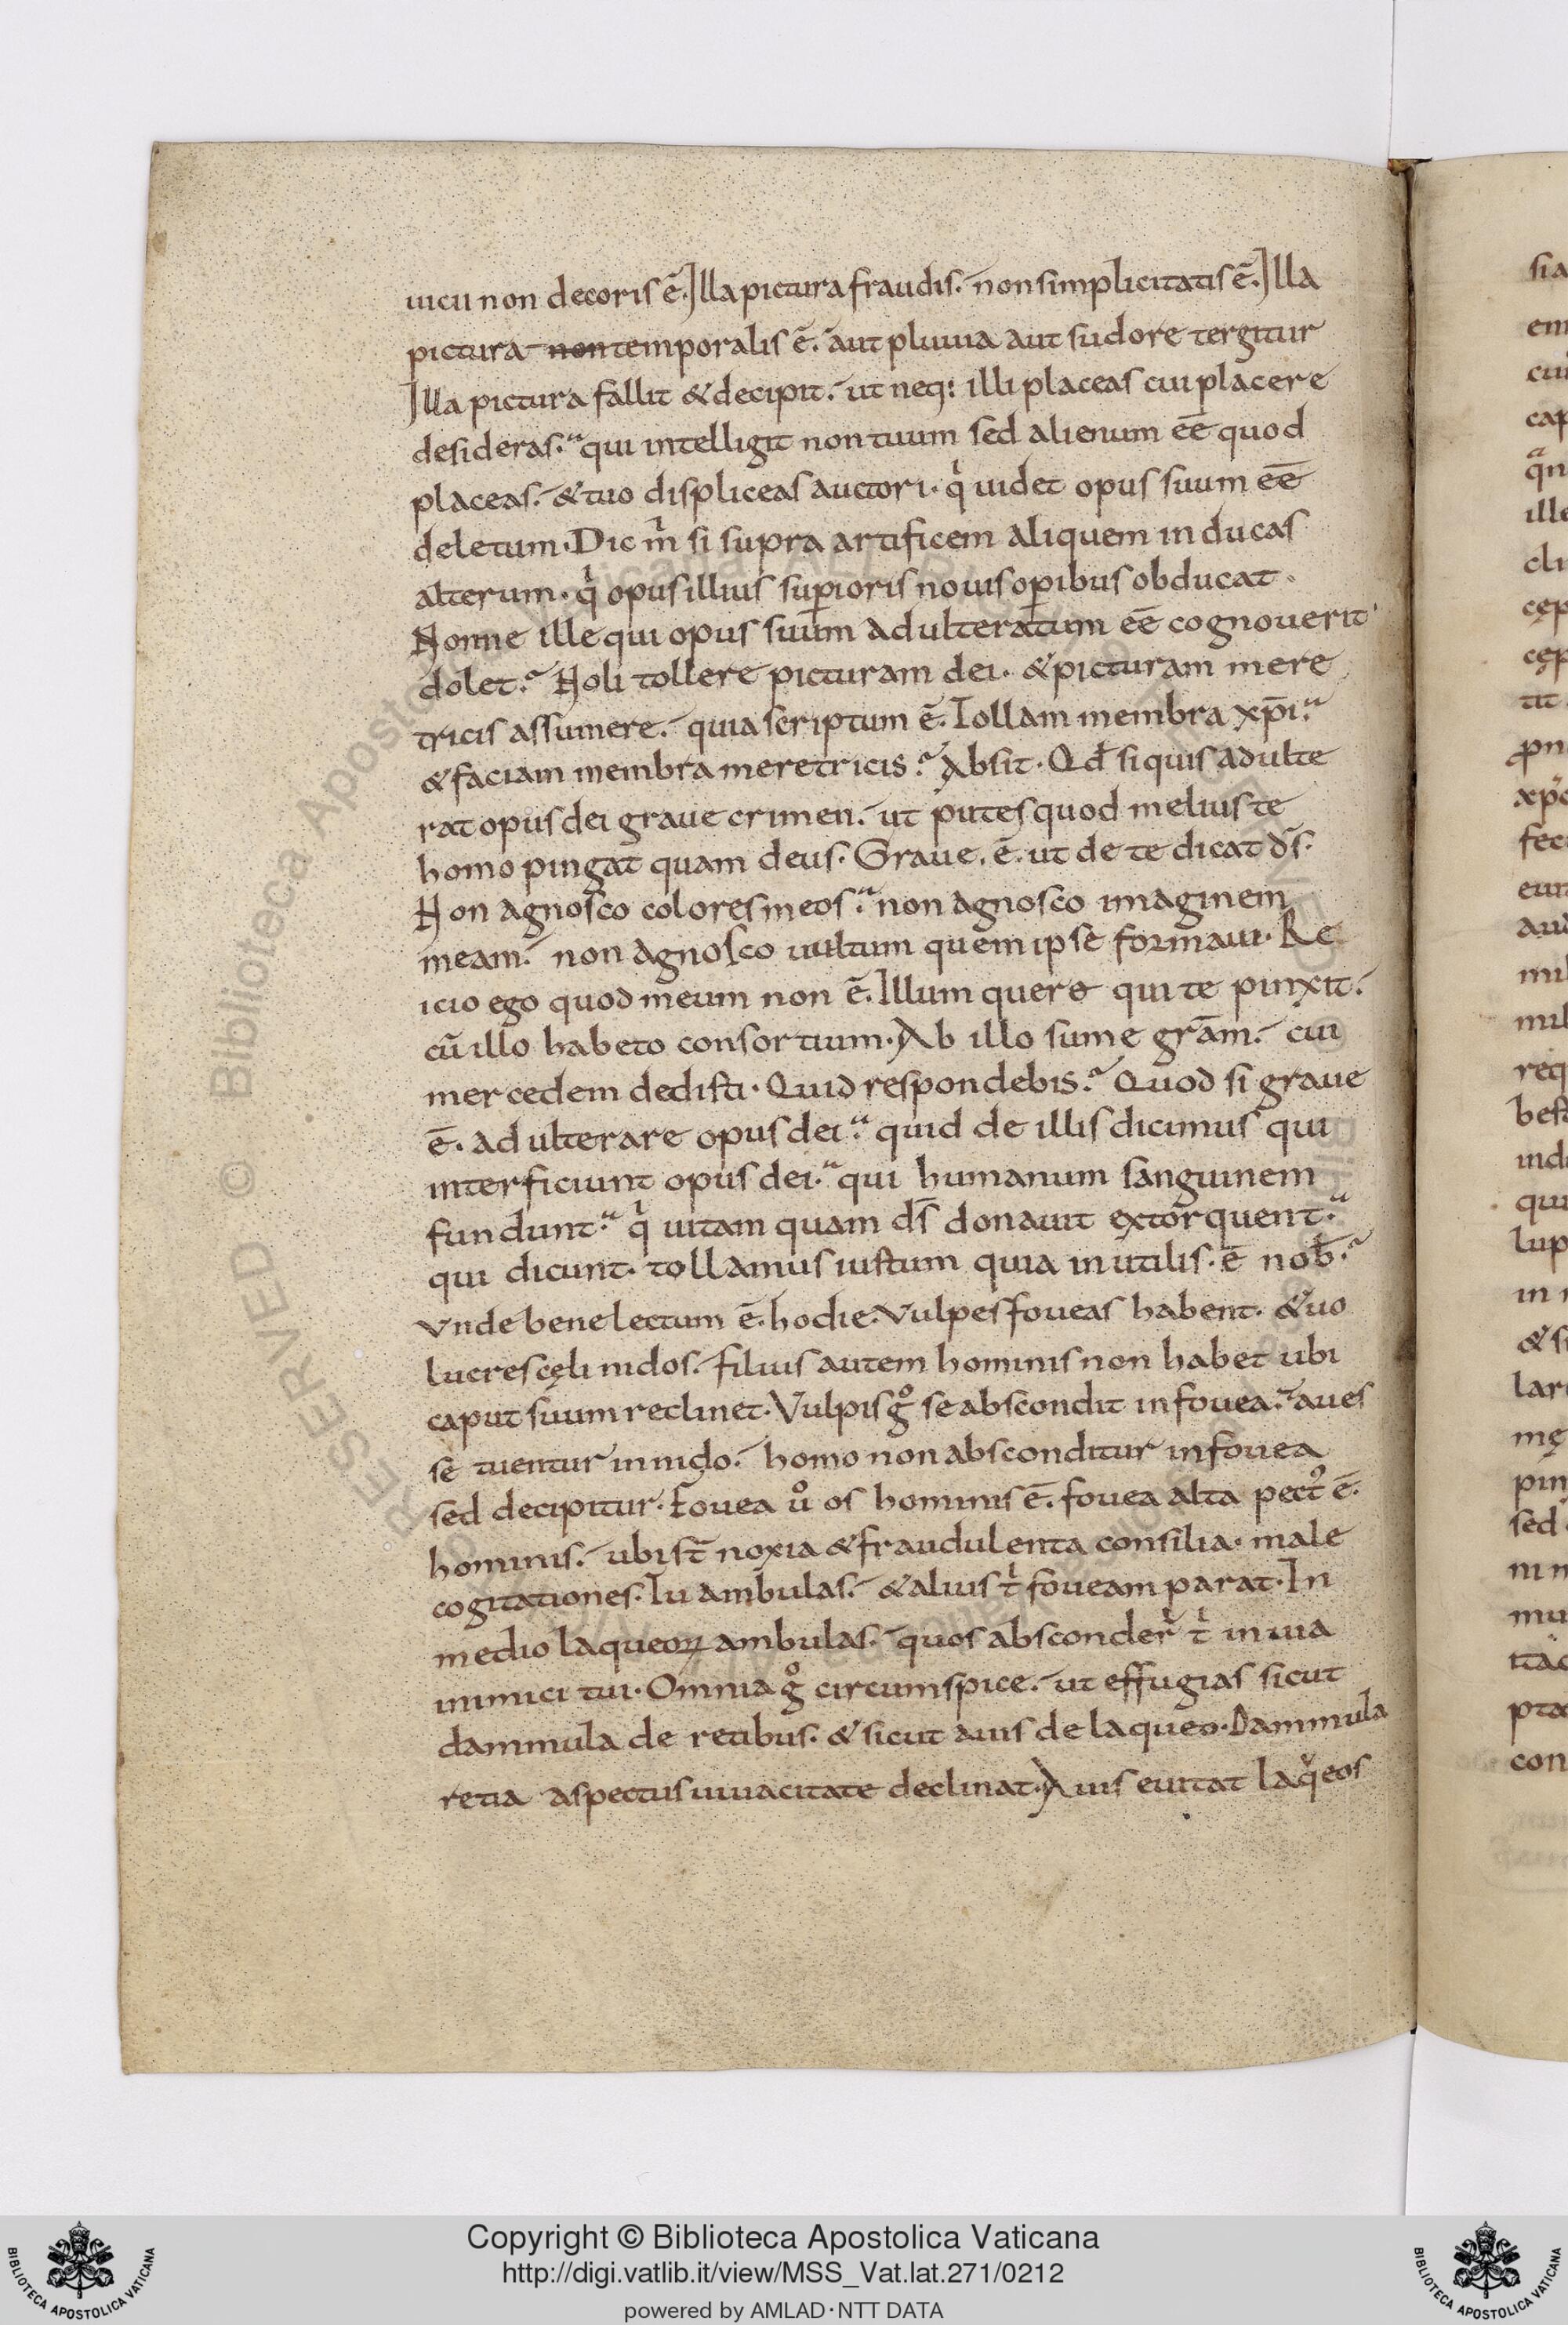 uicii non decoris ē. Illa pictura fraudis. non simplicitatis ē. Illa
pictura non temporalis ē. aut pluuia aut sudore tergitur
Illa pictura fallit & decipit. ut neq: illi placeas cui placere
desideras. qui intelligit non tuum sed alienum eē quod
placeas. & tuo displiceas auctori. qͥ uidet opus suum eē
deletum. Dic mͥ si supra artificem aliquem inducas
alterum. qͥ opus illius suꝑioris nouis oꝑibus obducat.
Nonne ille qui opus suum adulteratum eē cognouerit
dolet? Noli tollere picturam dei. & picturam mere
tricis assumere. quia scriptum ē. Tollam membra xp̄i?
& faciam membra meretricis? Absit. Qd̄ si quis adulte
rat opus dei graue crimen. ut putes quod melius te
homo pingat quam deus. Graue. ē. ut de te dicat d̄s.
Non agnosco colores meos. non agnosco imaginem
meam. non agnosco uultum quem ipse formaui. Re
icio ego quod meum non ē. Illum quere qui te pinxit.
cū illo habeto consortium. Ab illo sume grām. cui
mercedem dedisti. Quid respondebis? Quod si graue
ē. adulterare opus dei. quid de illis dicimus qui
interficiunt opus dei. qui humanum sanguinem
fundunt. qͥ uitam quam d̄s donauit extorquent.
qui dicunt. tollamus iustum quia inutilis. ē nob̄.
Vnde bene lectum ē. hodie. Vulpes foueas habent. & uo
lucres cęli nidos. filius autem hominis non habet ubi
caput suum reclinet. Vulpis gͦ se abscondit in fouea. aues
se tuentur in nido. homo non absconditur in fouea
sed decipitur. Fouea uͦ os hominis ē. fouea alta pect᾽ ē.
hominis. ubi st̄ noxia & fraudulenta consilia. male
cogitationes. Tu ambulas. & alius tͥ foueam parat. In
medio laqueoꝝ ambulas. quos absconder̄ tͥ in uia
inimici tui. Omnia gͦ circumspice. ut effugias sicut
dammula de retibus. & sicut auis de laqueo. Dammula
retia aspectus uiuacitate declinat. Auis euitat laq̆eos
Copyright © Biblioteca Apostolica Vaticana
http://digi.vatlib.it/view/MSS_Vat.lat.271/0212
powered by AMLAD·NTT DATA